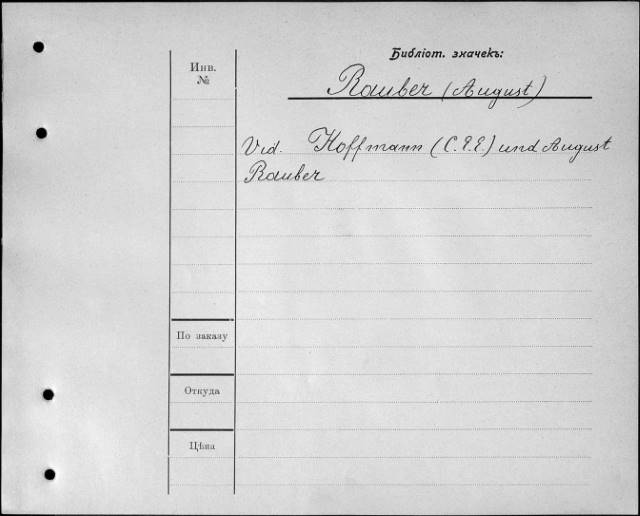 Библіот. значекъ:
Инв.
№
Rauber (August)
Vid. Hoffmann (C.E.E.) und August
Rauber
По заказу
Откуда
Цѣна